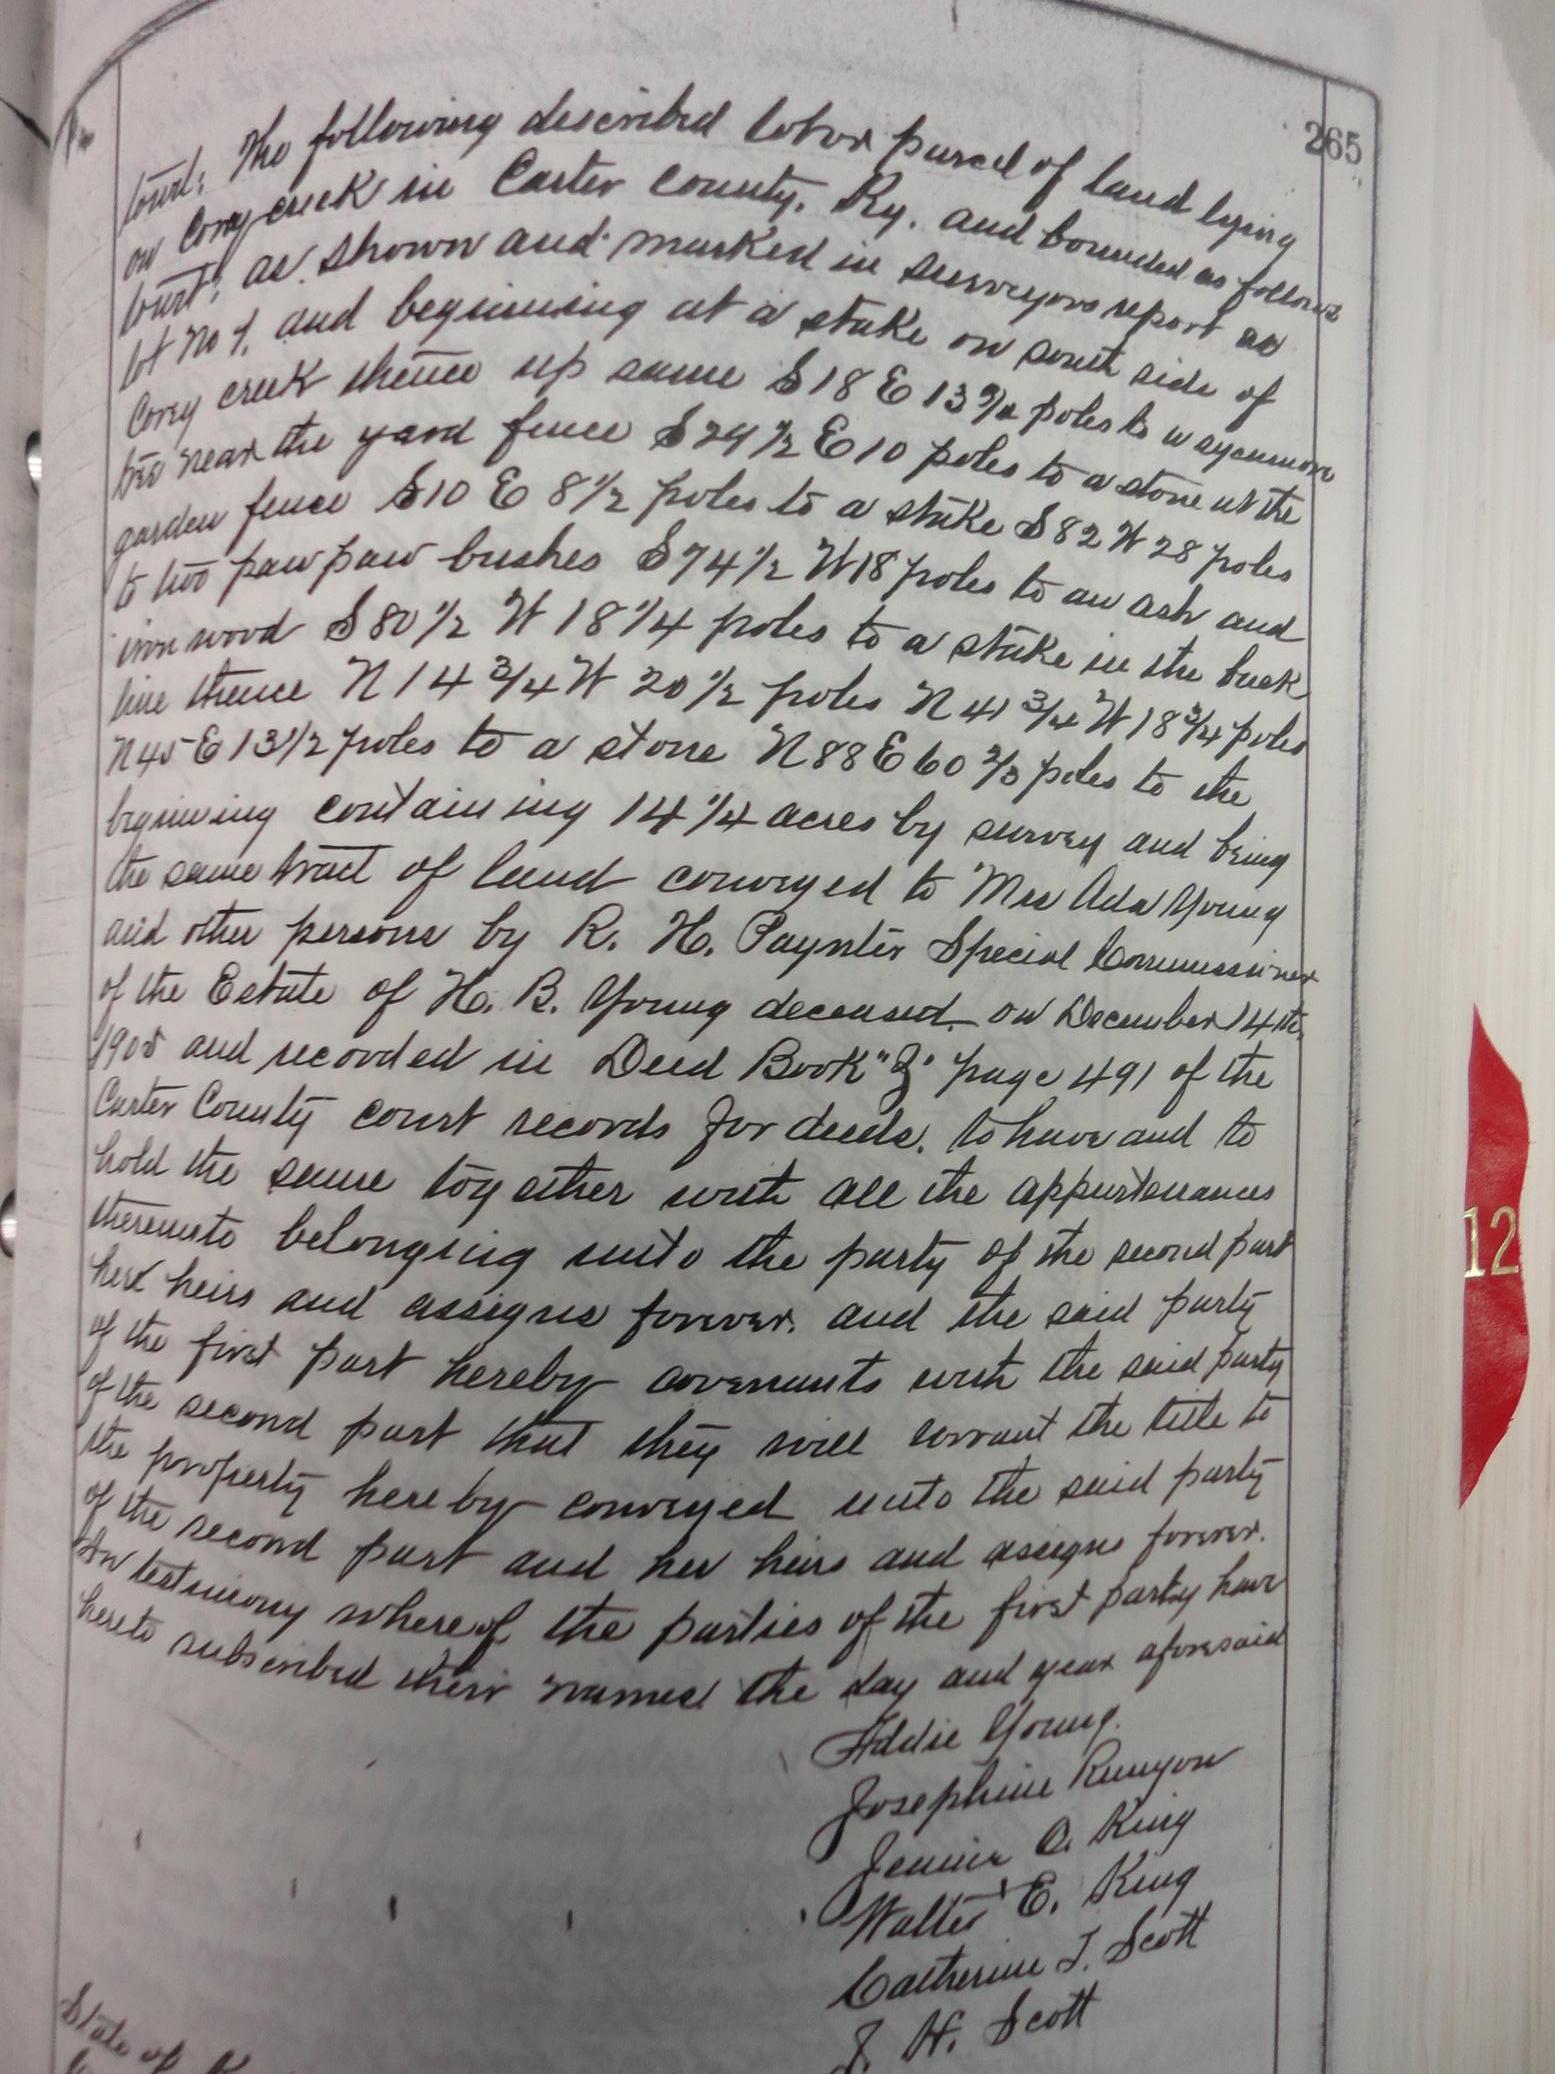 265
towit: The following described lot or parcel of land lying
on Corey creek in Carter County, Ky. and bounded as follows
towit: as shown and marked in surveyors report as
lot No 1. and beginning at a stake on south side of
Corey creek thence up same S 18 E 13 poles to a sycamore
tree near the yard fence E 10 poles to a stone at the
garden fence S 10 E 8 1/2 poles to a stake S 82 W 28 poles
to two paw paw bushes S 74 1/2 W 18 poles to an ash and
iron wood S 80 1/2 W 18 1/4 poles to a stake in the back
line thence N 14 3/4 W 20 1/2 poles N 41 3/4 W 18 3/4 poles
N 45 E 13 1/2 poles to a stone N 88 E 60 2/3 poles to the
beginning containing 14 1/4 acres by survey and being
the same tract of land conveyed to Mrs Ada Young
and other persons by R. H. Paynter Special Commissioner
of the Estate of H. B. Young deceased. on December 14th
and recorded in Deed Book page 491 of the
Carter County court records for deeds. to have and to
hold the same together with all the appurtenances
thereunto belonging unto the party of the second part
heirs and assigns forever. and the said party
of the first part hereby covenants with the said party
of the second part that they will warrant the title to
the property hereby conveyed unto the said party
of the second part and her heirs and assigns forever.
In testimony whereof the parties of the first party have
hereto subscribed their names the day and year aforesaid
Addie Young.
Josephine Runyon
Jennie C. King
Walter E. King
Catherine J. Scott
J. H. Scott
State of
12